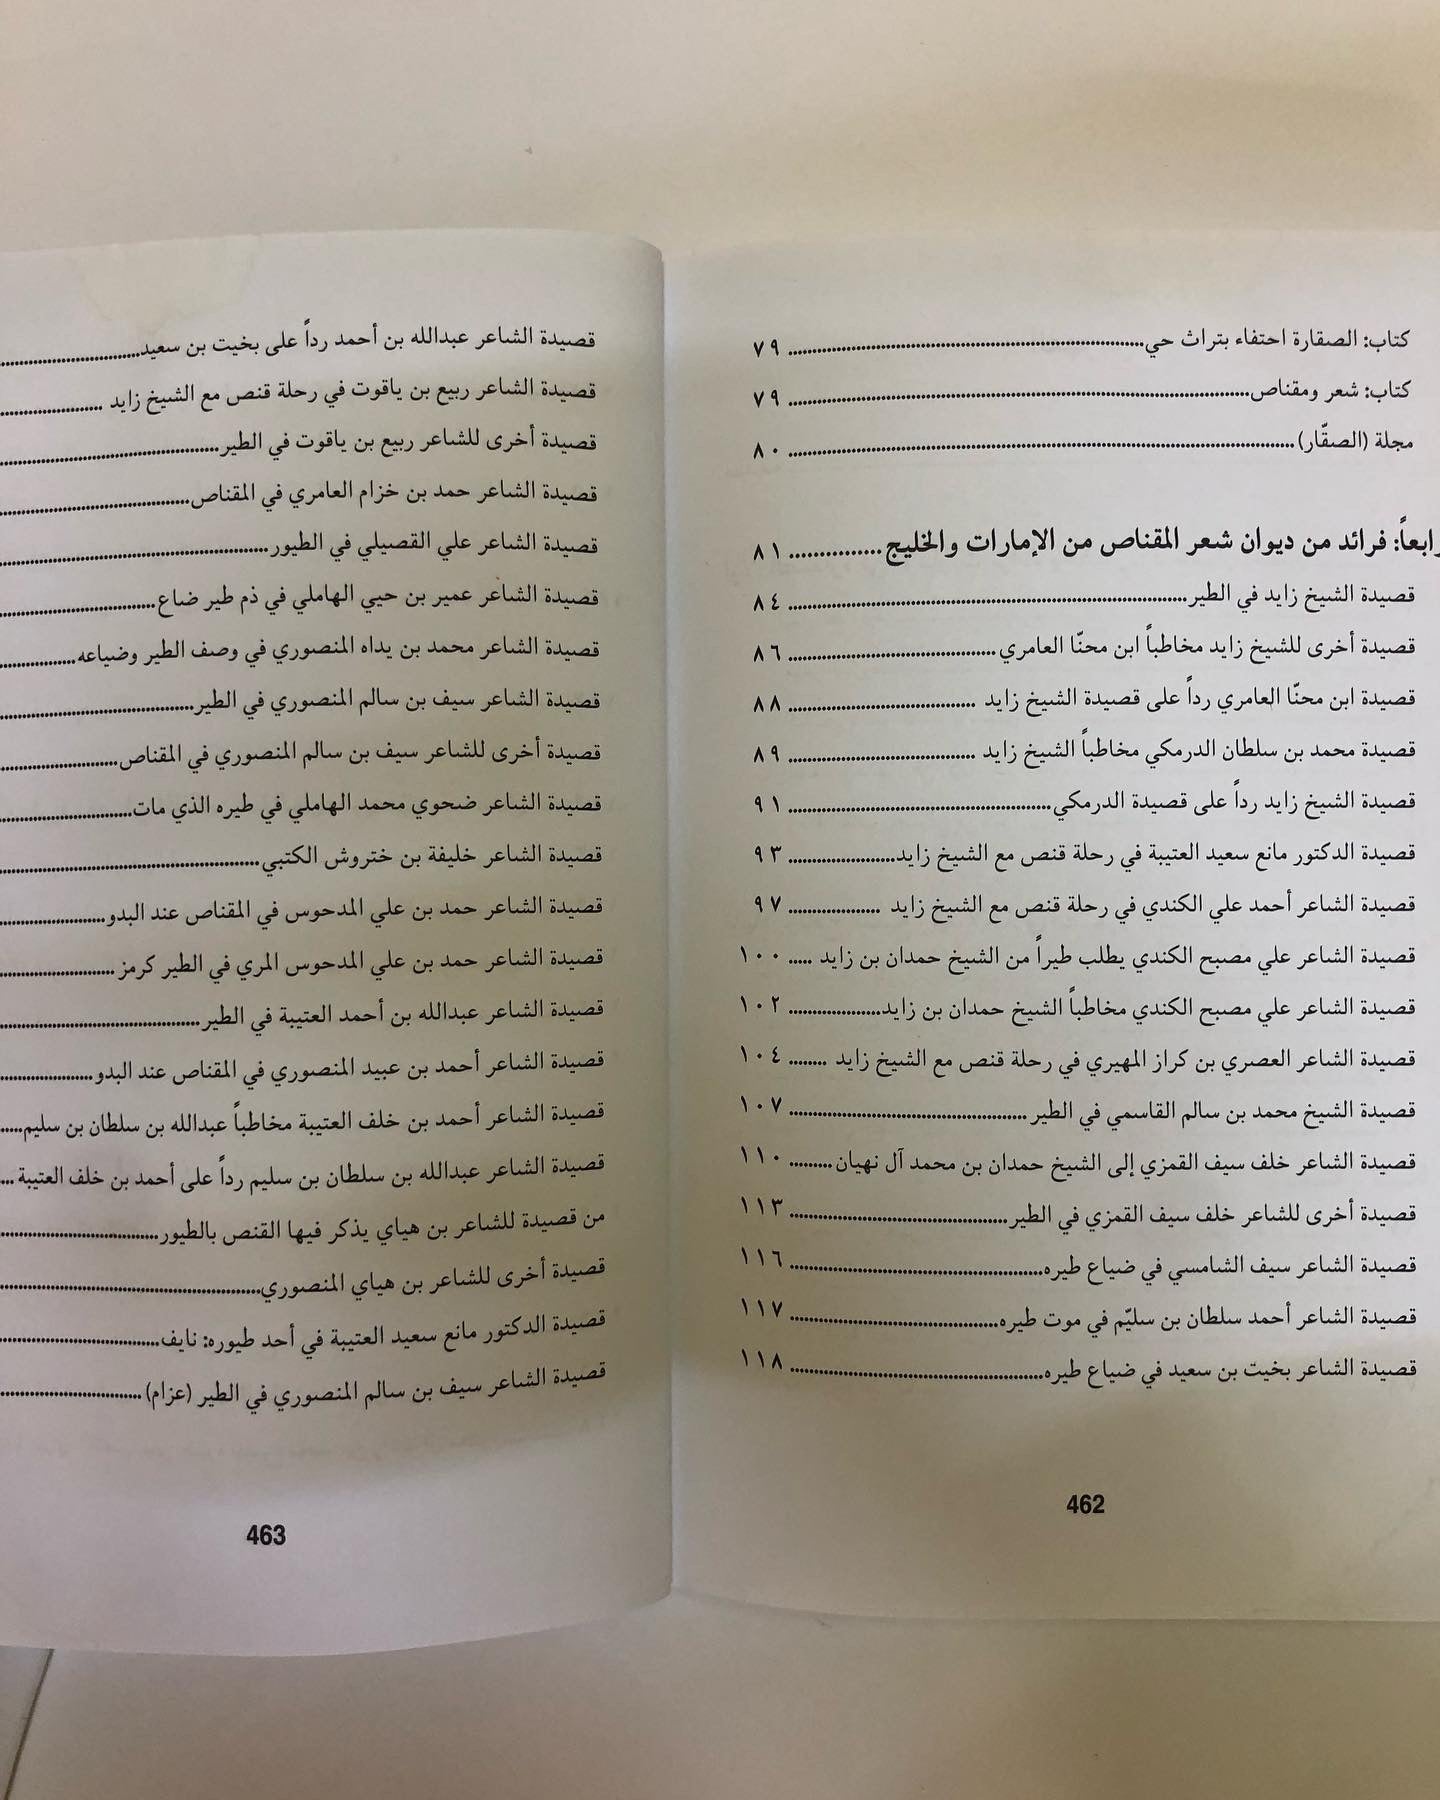 كتاب: الصقارة احتفاء بتراث حي ٧٩
كتاب: شعر ومقناص ٧٩
مجلة (الصقّار) ٨٠
رابعاً: فرائد من ديوان شعر المقناص من الإمارات والخليج ٨١
قصيدة الشيخ زايد في الطير ٨٤
قصيدة أخرى للشيخ زايد مخاطباً ابن محنّا العامري ٨٦
قصيدة ابن محنّا العامري رداً على قصيدة الشيخ زايد ٨٨
قصيدة محمد بن سلطان الدرمكي مخاطباً الشيخ زايد ٨٩
قصيدة الشيخ زايد رداً على قصيدة الدرمكي ٩١
قصيدة الدكتور مانع سعيد العتيبة في رحلة قنص مع الشيخ زايد ٩٣
قصيدة الشاعر أحمد علي الكندي في رحلة قنص مع الشيخ زايد ٩٧
قصيدة الشاعر علي مصبح الكندي يطلب طيراً من الشيخ حمدان بن زايد ١٠٠
قصيدة الشاعر علي مصبح الكندي مخاطباً الشيخ حمدان بن زايد ١٠٢
قصيدة الشاعر العصري بن كراز المهيري في رحلة قنص مع الشيخ زايد ١٠٤
قصيدة الشيخ محمد بن سالم القاسمي في الطير ١٠٧
قصيدة الشاعر خلف سيف القمزي إلى الشيخ حمدان بن محمد آل نهيان ١١٠
قصيدة أخرى للشاعر خلف سيف القمزي في الطير ١١٣
قصيدة الشاعر سيف الشامسي في ضياع طيره ١١٦
قصيدة الشاعر أحمد سلطان بن سليّم في موت طيره ١١٧
قصيدة الشاعر بخيت بن سعيد في ضياع طيره ١١٨
462
قصيدة الشاعر عبدالله بن أحمد رداً على بخيت بن سعيد
قصيدة الشاعر ربيع بن ياقوت في رحلة قنص مع الشيخ زايد
قصيدة أخرى للشاعر ربيع بن ياقوت في الطير
قصيدة الشاعر حمد بن خزام العامري في المقناص
قصيدة الشاعر علي القصيلي في الطيور
قصيدة الشاعر عمير بن حيي الهاملي في ذم طير ضاع
قصيدة الشاعر محمد بن يداه المنصوري في وصف الطير وضياعه
قصيدة الشاعر سيف بن سالم المنصوري في الطير
قصيدة أخرى للشاعر سيف بن سالم المنصوري في المقناص
قصيدة الشاعر ضحوي محمد الهاملي في طيره الذي مات
قصيدة الشاعر خليفة بن ختروش الكتبي
قصيدة الشاعر حمد بن علي المدحوس في المقناص عند البدو
قصيدة الشاعر حمد بن علي المدحوس المري في الطير كرمز
قصيدة الشاعر عبدالله بن أحمد العتيبة في الطير
قصيدة الشاعر أحمد بن عبيد المنصوري في المقناص عند البدو
قصيدة الشاعر أحمد بن خلف العتيبة مخاطباً عبدالله بن سلطان بن سليم
قصيدة الشاعر عبدالله بن سلطان بن سليم رداً على أحمد بن خلف العتيبة
من قصيدة للشاعر بن هياي يذكر فيها القنص بالطيور
قصيدة أخرى للشاعر بن هياي المنصوري
قصيدة الدكتور مانع سعيد العتيبة في أحد طيوره: نايف
قصيدة الشاعر سيف بن سالم المنصوري في الطير (عزام)
463